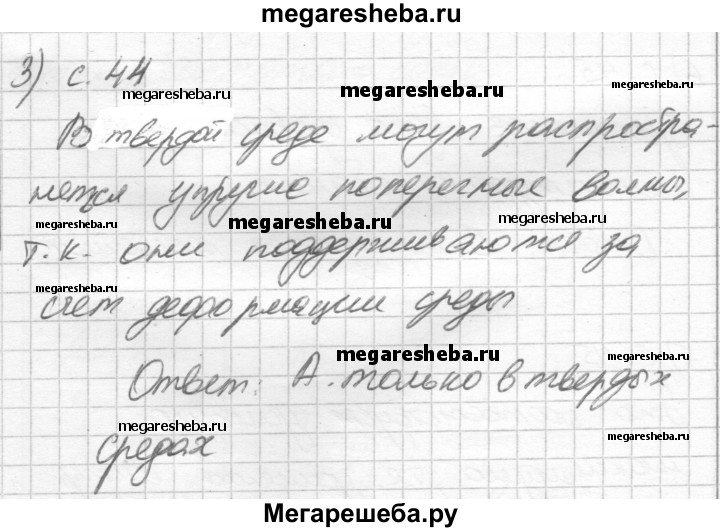 megaresheba.ru
3) с. 44
megaresheba.ru
megaresheba.ru
megaresheba.ru
В твердой среде могут распростра-
нятся упругие поперечные волны,
megaresheba.ru
megaresheba.ru
megaresheba.ru
т.к. они поддерживаются за
megaresheba.ru
megaresheba.ru
счет деформации среды
megaresheba.ru
Ответ: А. только в твердых
megaresheba.ru
megaresheba.ru
средах
Мегарешеба.ру